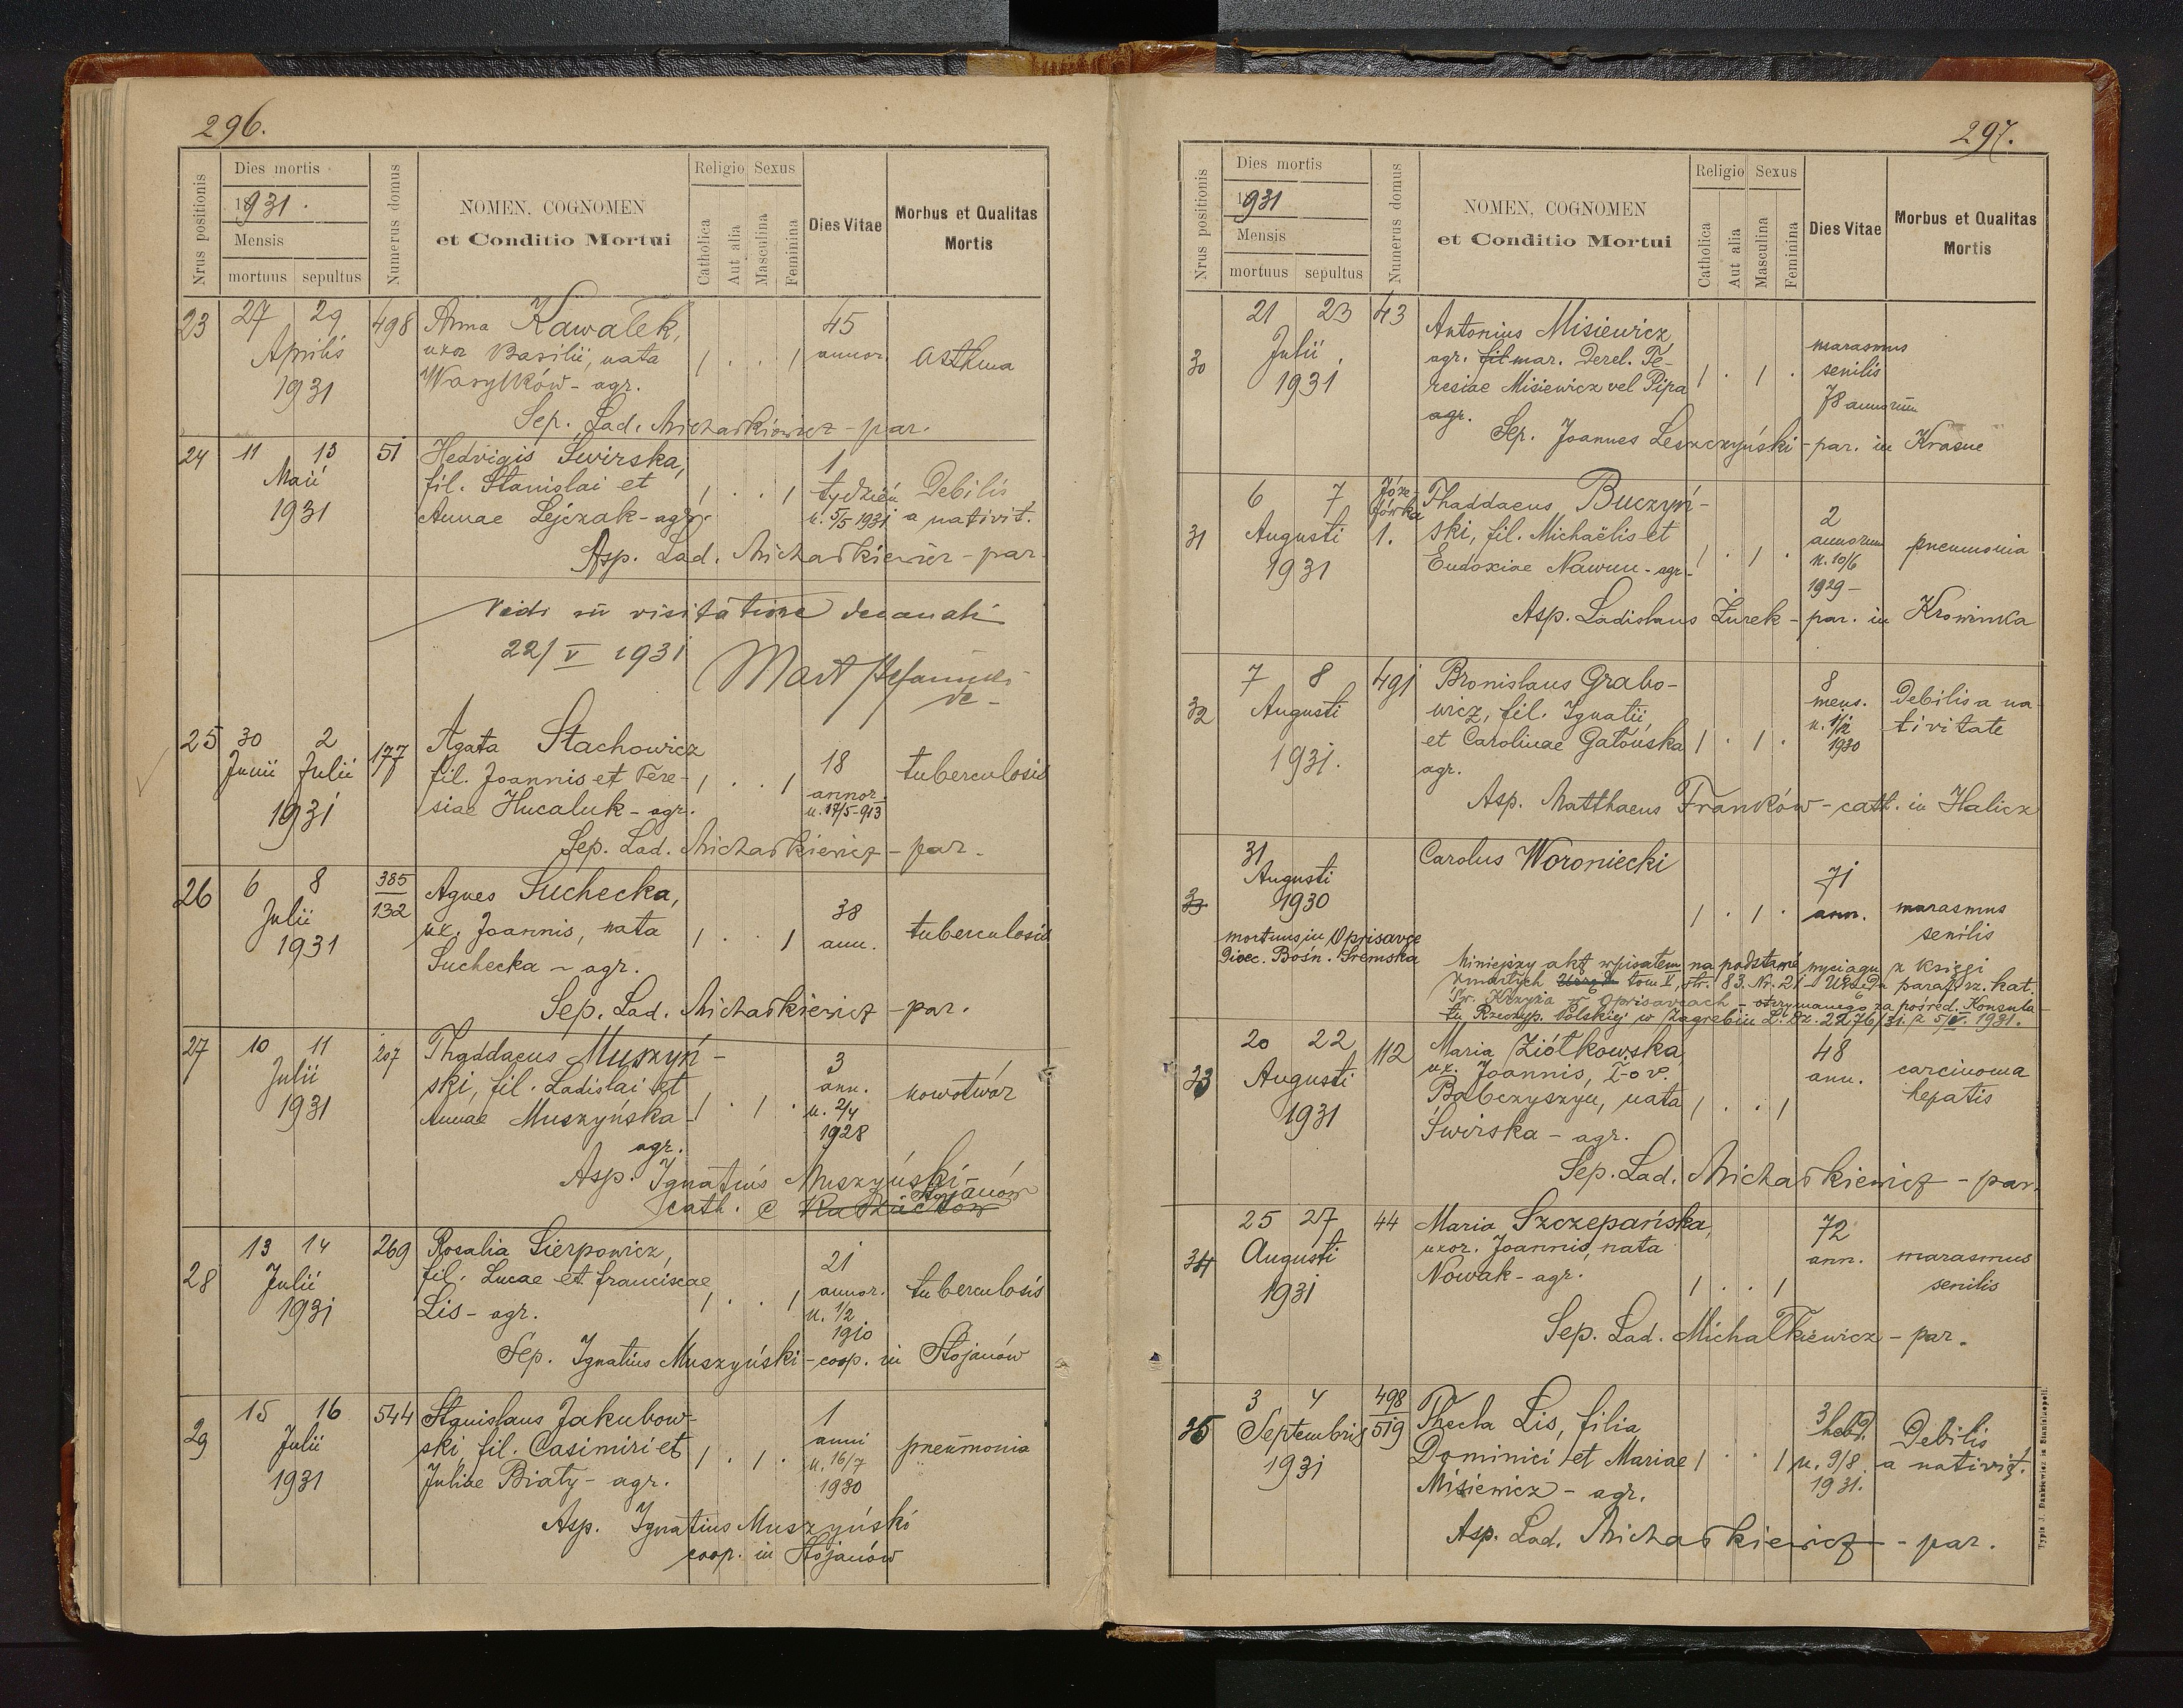 296.
Nrus positionis
Dies mortis
1931.
Mensis
mortuus sepultus
Numerus domus
NOMEN, COGNOMEN
et Conditio Mortui
Religio Sexus
Catholica
Aut alia
Masculina
Feminina
Dies Vitae
Morbus et Qualitas
Mortis
23 27 29 498 Anna Kawałek, 45
Aprilis uxor Basilii, nata 1 . . 1 annor. asthma
1931 Wasylków - agr.
Sep. Lad. Michałkiewicz - par.
24 11 13 51 Hedvigis Świrska, 1
Maii fil. Stanislai et 1 . . 1 tydzień Debilis
1931 Annae Lejczak - agr. n. 5/5 1931 a nativit.
Asp. Lad. Michałkiewicz - par.
Vidi in visitatione decanali
22/V 1931
25 30 2 177 Agata Stachowicz 18
Junii Julii fil. Joannis et Tere- 1 . . 1 annor. tuberculosis
1931 siae Hucaluk - agr. n. 17/5-913
Sep. Lad. Michałkiewicz - par.
26 6 8 385 Agnes Suchecka, 38
Julii 132 ux. Joannis, nata 1 . . 1 ann. tuberculosis
1931 Suchecka - agr.
Sep. Lad. Michałkiewicz - par.
27 10 11 207 Thaddaeus Muszyń- 3
Julii ski, fil. Ladislai et 1 . 1 . ann. nowotwór
1931 Annae Muszyńska - n. 2/4
agr. 1928
Asp. Ignatius Muszyński -
Stojanów
cath. e
28 13 14 269 Rosalia Sierpowicz, 21
Julii fil. Lucae et Franciscae 1 . . 1 annor. tuberculosis
1931 Lis - agr. n. 1/2
1910
Sep. Ignatius Muszyński - coop. in Stojanów
29 15 16 544 Stanislaus Jakubow- 1
Julii ski, fil. Casimiri et 1 . 1 . anni pneumonia
1931 Juliae Biały - agr. n. 16/7
1930
Asp. Ignatius Muszyński
coop. in Stojanów
297.
Nrus positionis
Dies mortis
1931
Mensis
mortuus sepultus
Numerus domus
NOMEN, COGNOMEN
et Conditio Mortui
Religio Sexus
Catholica
Aut alia
Masculina
Feminina
Dies Vitae
Morbus et Qualitas
Mortis
21 23 43 Antonius Misiewicz, marasmus
30 Julii. agr. fil mar. Derel. Te- senilis
1931 resiae Misiewicz vel Pipa 1 . 1 . 78 annorum
agr.
Sep. Joannes Leszczyński - par. in Krasne
6 7 Józe- Thaddaeus Buczyń- 2
fówka
31 Augusti 1. ski, fil. Michaëlis et 1 . 1 . annorum pneumonia
1931 Eudoxiae Nawun - agr. n. 10/6
1929 -
Asp. Ladislaus Żurek - par. in Krowinka
7 8 491 Bronislaus Grabo- 8 Debilis a na
32 Augusti wicz, fil. Ignatii, mens. tivitate
1931. et Carolinae Gatońska 1 . 1 . n. 1/12
agr. 1930
Asp. Matthaeus Franków - cath. in Halicz
31 Carolus Woroniecki 71
Augusti
33 1930 1 . 1 . ann. marasmus
mortuus in Oprisavce senilis
Dioec. Bośn. Sremska
Niniejszy akt wpisałem na podstawie wyciągu z księgi
zmarłych tom V, str. 83. Nr. 21 Urzędu paraf. rz. kat.
Św. Krzyża w Oprisavcach - otrzymanego za pośred. Konsula-
tu Rzeczyp. Polskiej w Zagrebiu L. Dz. 2276/31. z 5/V. 1931.
20 22 112 Maria Ziółkowska 48
33 Augusti ux. Joannis, I-o v. ann. carcinoma
1931 Babczyszyn, nata 1 . . 1 hepatis
Świrska - agr.
Sep. Lad. Michałkiewicz - par.
25 27 44 Maria Szczepańska, 72
34 Augusti uxor. Joannis, nata ann. marasmus
1931 Nowak - agr. 1 . . 1 senilis
Sep. Lad. Michałkiewicz - par.
3 4 498 Thecla Lis, filia 3
35 Septembris 519 Dominici et Mariae 1 . . 1 hebd. Debilis
1931 Misiewicz - agr. n. 9/8 a nativit.
1931.
Asp. Lad. Michałkiewicz - par.
Typis J. Dankiewicz in Stanislaopoli.